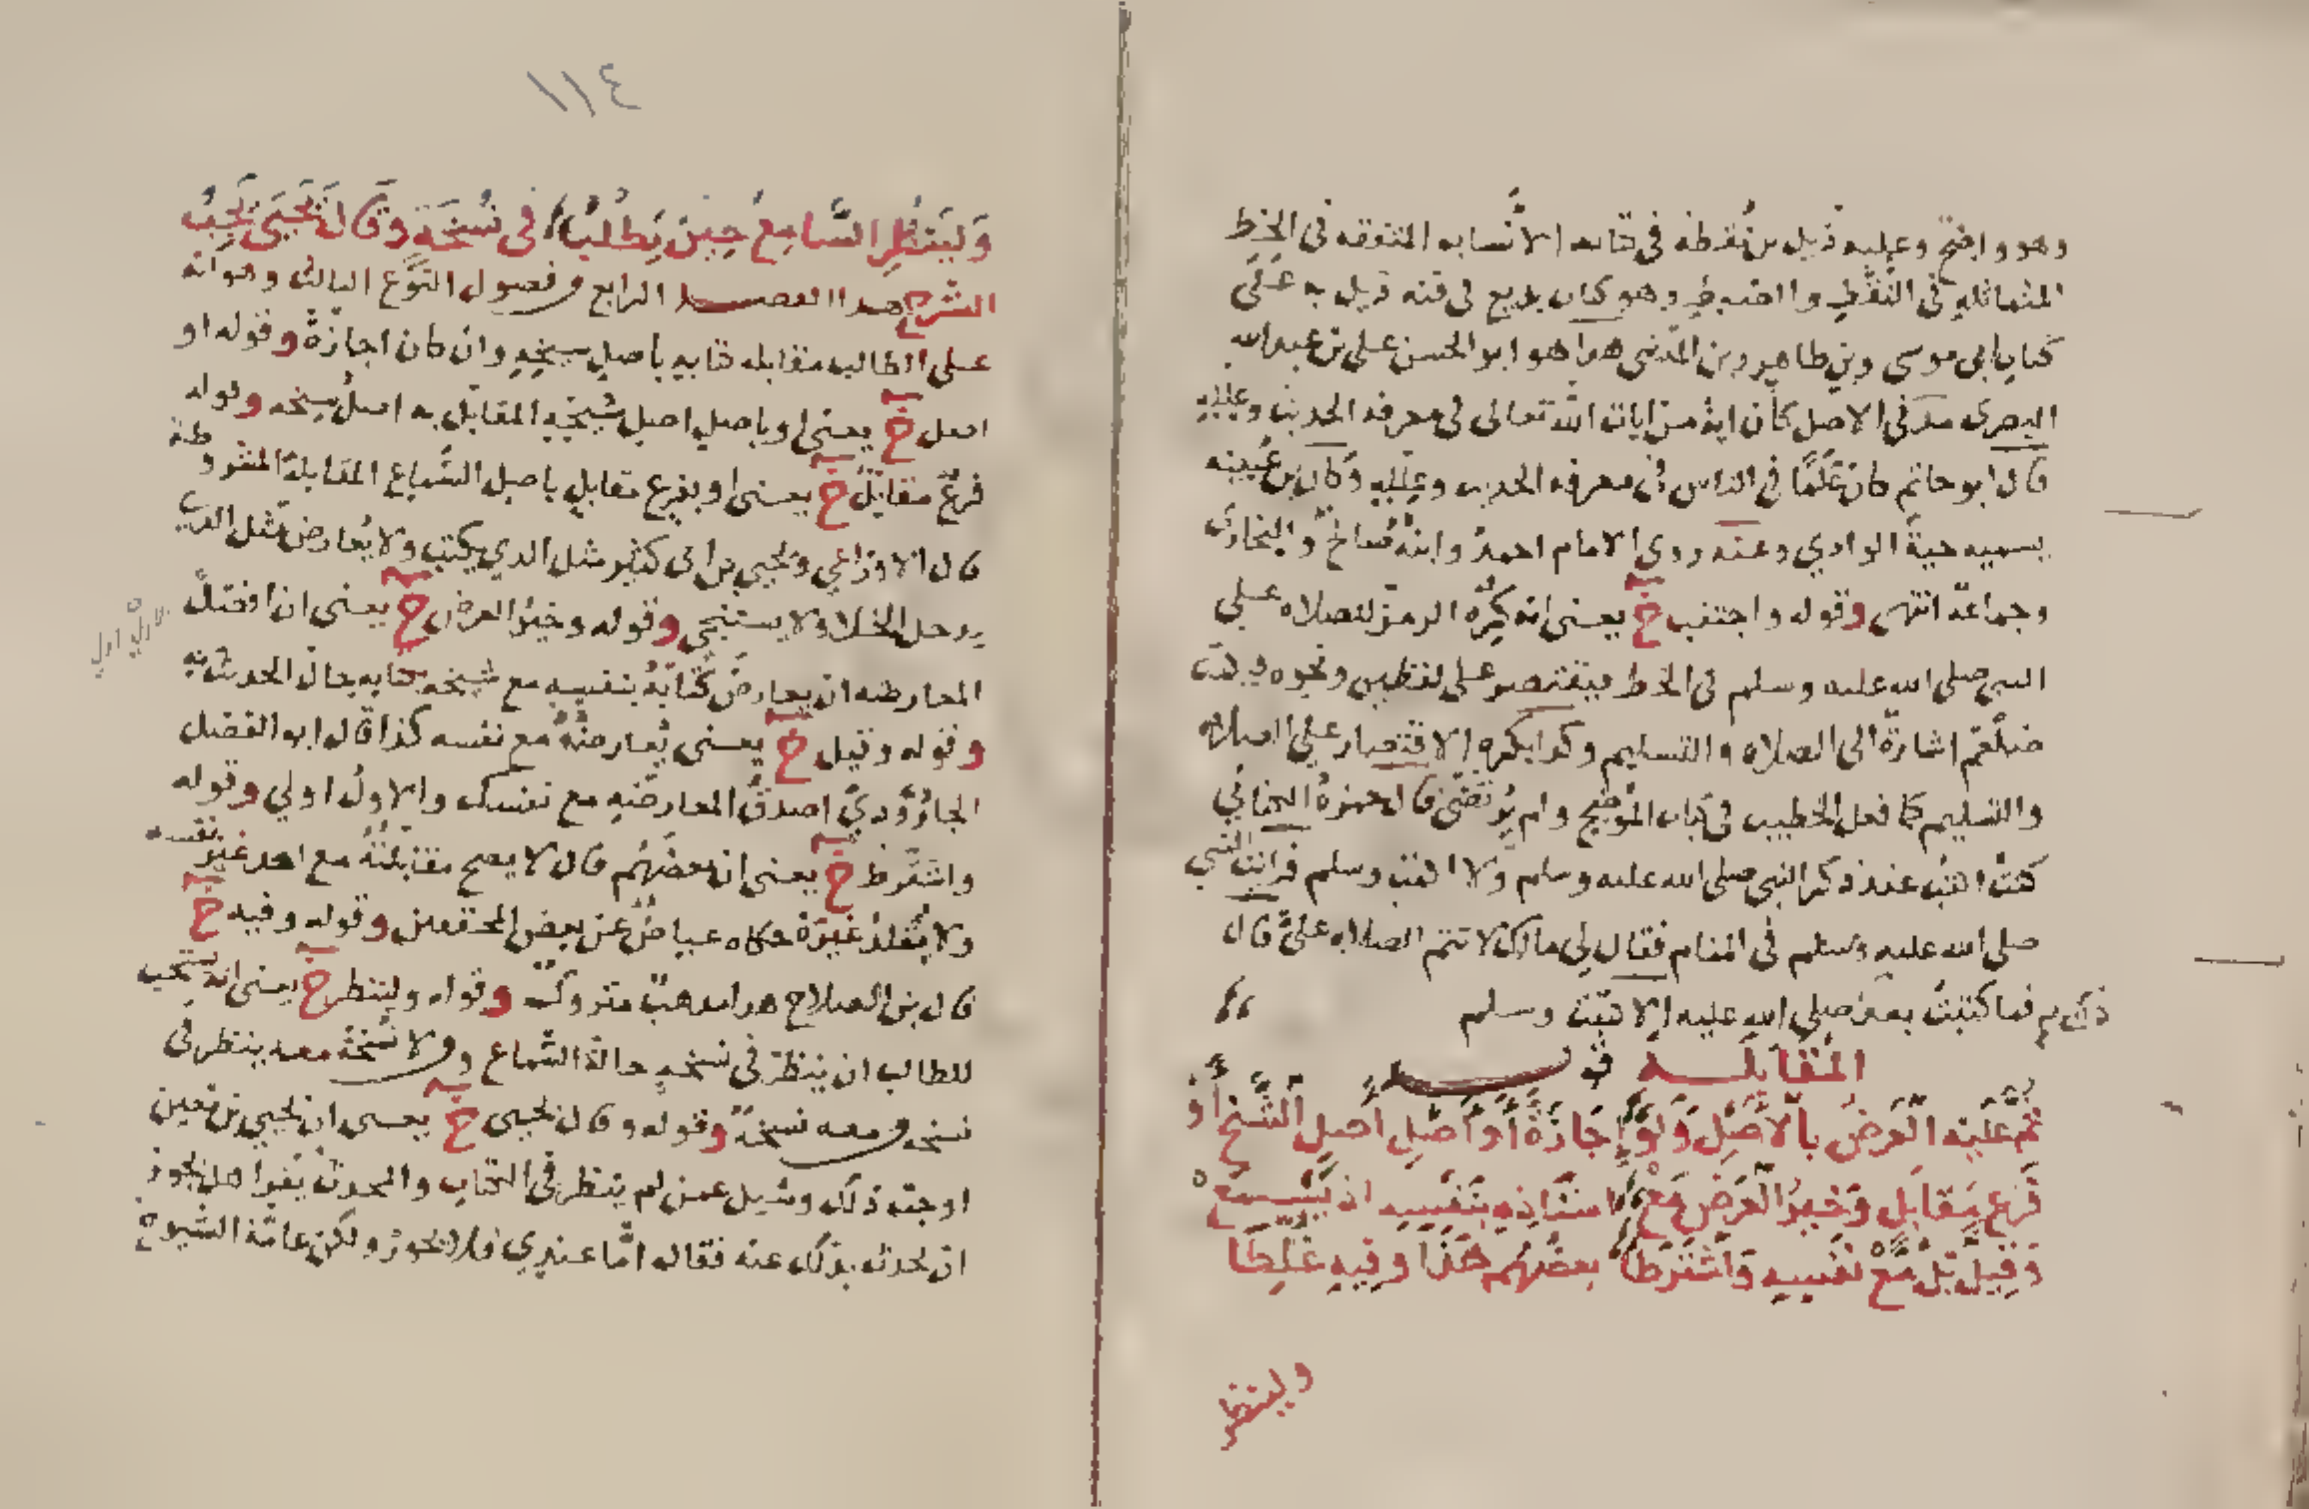 وهو واضح وعليه ذيل بن نقطة في كتابه الانسابه المتفقه في الخط
المتماثله في النقط والضبط وهو كتاب بديع في فنه ذيل به على
كتاب ابي موسى وبن طاهر وبن المديني هذا هو ابو الحسن علي بن عبدالله
البصري مذ في الاصل كان اية من ايات الله تعالى في معرفة الحديث وعلله
قال ابو حاتم كان علما في الناس في معرفة الحديث وعلله وكان بن عيينه
يسميه حية الوادي وعنه روى الامام احمد وابنه صالح والبخاري
وجماعة انتهى وقوله واجتنب خ يعني انه يكره الرمز للصلاه على
النبي صلى الله عليه وسلم في الخط فيقتصر على لفظين ونحوه فيكتب
صلعم اشارة الى الصلاه والتسليم وكذا يكره الاقتصار على الصلاه
والتسليم كما فعل الخطيب في كتاب الموضح ولم يرتضى قال حمزة الكناني
كنت اكتب عند ذكر النبي صلى الله عليه وسلم ولا اكتب وسلم فرايت النبي
صلى الله عليه وسلم في المنام فقال لي مالك لا تتم الصلاة علي قال
فما كتبت بعد صلى الله عليه الا كتبت وسلم
المقابلة
ثم عليه العرض بالاصل ولو إجازة أو أصل اصل الشيخ أو
فرع مقابل وخير العرض مع استاذه بنفسه اذ يسمع
وقيل بل مع نفسه واشترطا بعضهم هذا وفيه غلطا
ولينظر
١١٤
ولينظر السامع حين يطلب في نسخة وقال يحيى يجب
الشرح هذا الفصل الرابع من فصول النوع الثالث وهو انه
على الطالب مقابلة كتابه باصل شيخه وان كان اجازة وقوله او
اصل خ يعني او باصل اصل شيخه المقابل به اصل شيخه وقوله
فرع مقابل خ يعني او بفرع مقابل باصل السماع المقابلة المشروطة
قال الاوزاعي ويحيي بن ابي كثير مثل الذي يكتب ولا يعارض مثل الذي
يدخل الخلا ولا يستنجي وقوله وخير العرض خ يعني ان افضل
المعارضه ان يعارض كتابه بنفسه مع شيخه بكتابه حال الحديث به
وقوله وقيل خ يعني يعارضه مع نفسه كذا قال ابو الفضل
الجارودي اصدق المعارضه مع نفسك والاول اولي وقوله
واشترط خ يعني ان بعضهم قال لا يصح مقابلته مع احد غير نفسه
ولا يقلد غيره حكاه عياض عن بعض المحققين وقوله وفيه خ
قال بن الصلاح هذا مذهب متروك وقوله ولينظر خ يعني انه يستحب
للطالب ان ينظر في نسخه حالة السماع ومن لا نسخة معه ينظر في
نسخه من معه نسخة وقوله وقال يحيى خ يعني ان يحيى بن معين
اوجب ذلك وسيل عمن لم ينظر في الكتاب والمحدث يقرا هل يجوز
ان يحدث بذلك عنه فقال اما عندي فلا يجوز ولكن عامة الشيوخ